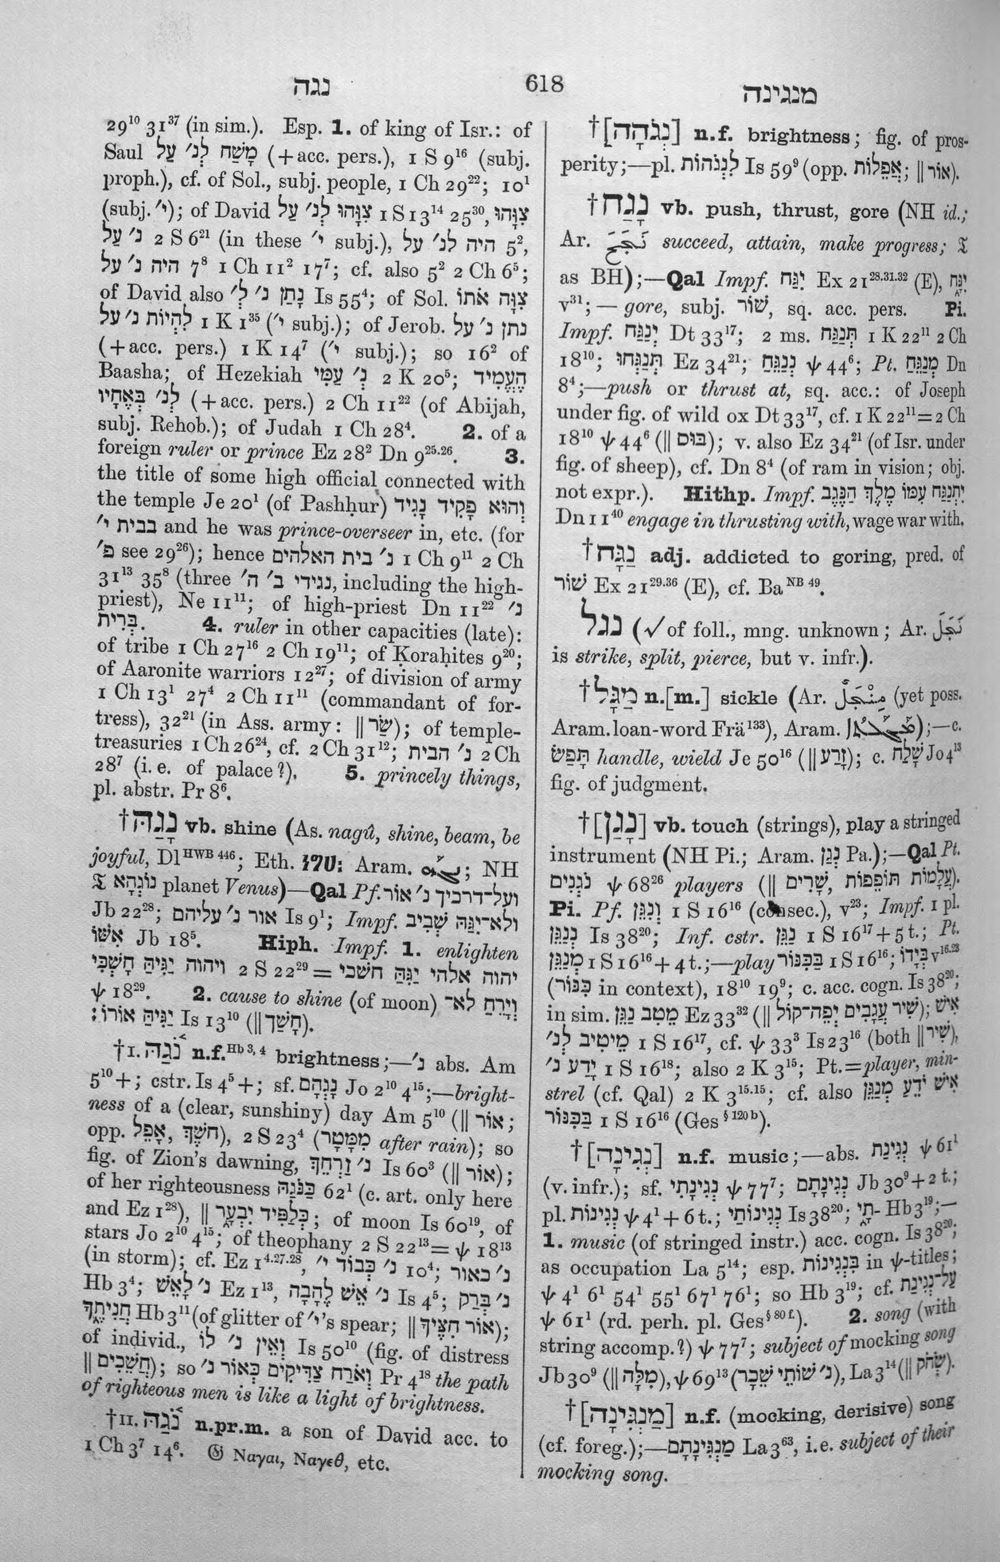 נגה
618
מנגינה
29¹⁰ 31³⁷ (in sim.). Esp. 1. of king of Isr.: of
Saul מָשַׁח לְנ׳ עַל (+acc. pers.), 1 S 9¹⁶ (subj.
proph.), cf. of Sol., subj. people, 1 Ch 29²²; 10¹
(subj. י׳); of David צִוָּהוּ לְנ׳ עַל 1 S 13¹⁴ 25³⁰, צִוָּהוּ
נ׳ עַל 2 S 6²¹ (in these י׳ subj.), היה לנ׳ על 5²,
היה נ׳ עַל 7⁸ 1 Ch 11² 17⁷; cf. also 5² 2 Ch 6⁵;
of David also נָתַן נ׳ לְ׳ Is 55⁴; of Sol. צִוָּה אֹתוֹ
לִהְיוֹת נ׳ עַל 1 K 1³⁵ (י׳ subj.); of Jerob. נתן נ׳ על
(+acc. pers.) 1 K 14⁷ (י׳ subj.); so 16² of
Baasha; of Hezekiah נְ׳ עַמִּי 2 K 20⁵; הֶעֱמִיד
לְנ׳ בְּאֶחָיו (+acc. pers.) 2 Ch 11²² (of Abijah,
subj. Rehob.); of Judah 1 Ch 28⁴. 2. of a
foreign ruler or prince Ez 28² Dn 9²⁵·²⁶. 3.
the title of some high official connected with
the temple Je 20¹ (of Pashḥur) וְהוּא פָקִיד נָגִיד
בבית י׳ and he was prince-overseer in, etc. (for
פ׳ see 29²⁶); hence נ׳ בית האלהים 1 Ch 9¹¹ 2 Ch
31¹³ 35⁸ (three נגידי ב׳ ה׳, including the high-
priest), Ne 11¹¹; of high-priest Dn 11²² נ׳
בְּרִית. 4. ruler in other capacities (late):
of tribe 1 Ch 27¹⁶ 2 Ch 19¹¹; of Ḳoraḥites 9²⁰;
of Aaronite warriors 12²⁷; of division of army
1 Ch 13¹ 27⁴ 2 Ch 11¹¹ (commandant of for-
tress), 32²¹ (in Ass. army: ‖ שַׂר); of temple-
treasuries 1 Ch 26²⁴, cf. 2 Ch 31¹²; נ׳ הבית 2 Ch
28⁷ (i. e. of palace?). 5. princely things,
pl. abstr. Pr 8⁶.
†נָגַהּ vb. shine (As. nagû, shine, beam, be
joyful, Dl ᴴᵂᴮ ⁴⁴⁶; Eth. Aram. ; NH
נוֹגְהָא planet Venus)—Qal Pf. ועל־דרכיך נ׳ אור
Jb 22²⁸; אור נ׳ עליהם Is 9¹; Impf. ולא־יִגַּהּ שְׁבִיב
אִשּׁוֹ Jb 18⁵. Hiph. Impf. 1. enlighten
ויהוה יַגִּיהַּ חָשְׁכִּי 2 S 22²⁹ = יהוה אלהי יַגִּהַּ חשכי
ψ 18²⁹. 2. cause to shine (of moon) וְיָרֵחַ לֹא־
יַגִּיהַּ אוֹרוֹ: Is 13¹⁰ (‖ חָשַׁךְ).
†I. נֹגַהּ n.f. ᴴᵇ ³·⁴ brightness;—נ׳ abs. Am
5¹⁰+; cstr. Is 4⁵+; sf. נָגְהָם Jo 2¹⁰ 4¹⁵;—bright-
ness of a (clear, sunshiny) day Am 5¹⁰ (‖ אוֹר;
opp. חשֶׁךְ, אָפֵל), 2 S 23⁴ (מִמָּטָר after rain); so
fig. of Zion's dawning, נ׳ זַרְחֵךְ Is 60³ (‖ אוֹר);
of her righteousness כַּנֹּגַהּ 62¹ (c. art. only here
and Ez 1²⁸), ‖ כְּלַפִּיד יִבְעָר; of moon Is 60¹⁹, of
stars Jo 2¹⁰ 4¹⁵; of theophany 2 S 22¹³ = ψ 18¹³
(in storm); cf. Ez 1⁴·²⁷·²⁸, נ׳ כְּבוֹד י׳ 10⁴; נ׳ כאור
Hb 3⁴; נ׳ לָאֵשׁ Ez 1¹³, נ׳ אֵשׁ לֶהָבָה Is 4⁵; נ׳ בְּרַק
חֲנִיתֶךָ Hb 3¹¹ (of glitter of י׳'s spear; ‖ אוֹר חִצֶּיךָ);
of individ., וְאֵין נ׳ לוֹ Is 50¹⁰ (fig. of distress
‖ חֲשֵׁכִים); so וְאֹרַח צַדִּיקִים כְּאוֹר נ׳ Pr 4¹⁸ the path
of righteous men is like a light of brightness.
†II. נֹגַהּ n.pr.m. a son of David acc. to
1 Ch 3⁷ 14⁶. Ναγαι, Ναγεθ, etc.
†[נְגֹהָה] n.f. brightness; fig. of pros-
perity;—pl. לִנְגֹהוֹת Is 59⁹ (opp. אֲפֵלוֹת; ‖ אוֹר).
†נָגַח vb. push, thrust, gore (NH id.;
Ar. نَجَحَ succeed, attain, make progress;
as BH);—Qal Impf. יִגַּח Ex 21²⁸·³¹·³² (E), יִגָּח
v³¹;—gore, subj. שׁוֹר, sq. acc. pers. Pi.
Impf. יְנַגַּח Dt 33¹⁷; 2 ms. תְּנַגַּח 1 K 22¹¹ 2 Ch
18¹⁰; תְּנַגְּחוּ Ez 34²¹; נְנַגֵּחַ ψ 44⁶; Pt. מְנַגֵּחַ Dn
8⁴;—push or thrust at, sq. acc.: of Joseph
under fig. of wild ox Dt 33¹⁷, cf. 1 K 22¹¹=2 Ch
18¹⁰ ψ 44⁶ (‖ בּוּס); v. also Ez 34²¹ (of Isr. under
fig. of sheep), cf. Dn 8⁴ (of ram in vision; obj.
not expr.). Hithp. Impf. יִתְנַגַּח עִמּוֹ מֶלֶךְ הַנֶּגֶב
Dn 11⁴⁰ engage in thrusting with, wage war with.
†נַגָּח adj. addicted to goring, pred. of
שׁוֹר Ex 21²⁹·³⁶ (E), cf. Ba ᴺᴮ ⁴⁹.
נגל (√ of foll., mng. unknown; Ar. نَجَلَ
is strike, split, pierce, but v. infr.).
†מַגָּל n.[m.] sickle (Ar. مِنْجَلٌ (yet poss.
Aram. loan-word Frä ¹³³), Aram. );—c.
תָּפַשׂ handle, wield Je 50¹⁶ (‖ זָרַע); c. שָׁלַח Jo 4¹³
fig. of judgment.
†[נָגַן] vb. touch (strings), play a stringed
instrument (NH Pi.; Aram. נְגַן Pa.);—Qal Pt.
נֹגְנִים ψ 68²⁶ players (‖ שָׁרִים, עֲלָמוֹת תּוֹפֵפוֹת).
Pi. Pf. וְנִגֵּן 1 S 16¹⁶ (consec.), v²³; Impf. 1 pl.
נְנַגֵּן Is 38²⁰; Inf. cstr. נַגֵּן 1 S 16¹⁷+5 t.; Pt.
מְנַגֵּן 1 S 16¹⁶+4 t.;—play בַּכִּנּוֹר 1 S 16¹⁶; בְּיָדוֹ v¹⁶·²³
(כִּנּוֹר in context), 18¹⁰ 19⁹; c. acc. cogn. Is 38²⁰;
in sim. מֵטִב נַגֵּן Ez 33³² (‖ שִׁיר עֲגָבִים יְפֵה־קוֹל); אִישׁ
מֵיטִיב לְנ׳ 1 S 16¹⁷, cf. ψ 33³ Is 23¹⁶ (both ‖ שִׁיר),
יֹדֵעַ נ׳ 1 S 16¹⁸; also 2 K 3¹⁵; Pt.=player, min-
strel (cf. Qal) 2 K 3¹⁵·¹⁵; cf. also אִישׁ יֹדֵעַ מְנַגֵּן
בַּכִּנּוֹר 1 S 16¹⁶ (Ges § ¹²⁰ ᵇ).
†[נְגִינָה] n.f. music;—abs. נְגִינַת ψ 61¹
(v. infr.); sf. נְגִינָתִי ψ 77⁷; נְגִינָתָם Jb 30⁹+2 t.;
pl. נְגִינוֹת ψ 4¹+6 t.; נְגִינוֹתַי Is 38²⁰; ־תָי Hb 3¹⁹;—
1. music (of stringed instr.) acc. cogn. Is 38²⁰;
as occupation La 5¹⁴; esp. בִּנְגִינוֹת in ψ-titles;
ψ 4¹ 6¹ 54¹ 55¹ 67¹ 76¹; so Hb 3¹⁹; cf. עַל־נְגִינַת
ψ 61¹ (rd. perh. pl. Ges § ⁸⁰ ᶠ·). 2. song (with
string accomp.?) ψ 77⁷; subject of mocking song
Jb 30⁹ (‖ מִלָּה), ψ 69¹³ (נ׳ שׁוֹתֵי שֵׁכָר), La 3¹⁴ (‖ שְׂחֹק).
†[מַנְגִּינָה] n.f. (mocking, derisive) song
(cf. foreg.);—מַנְגִּינָתָם La 3⁶³, i.e. subject of their
mocking song.